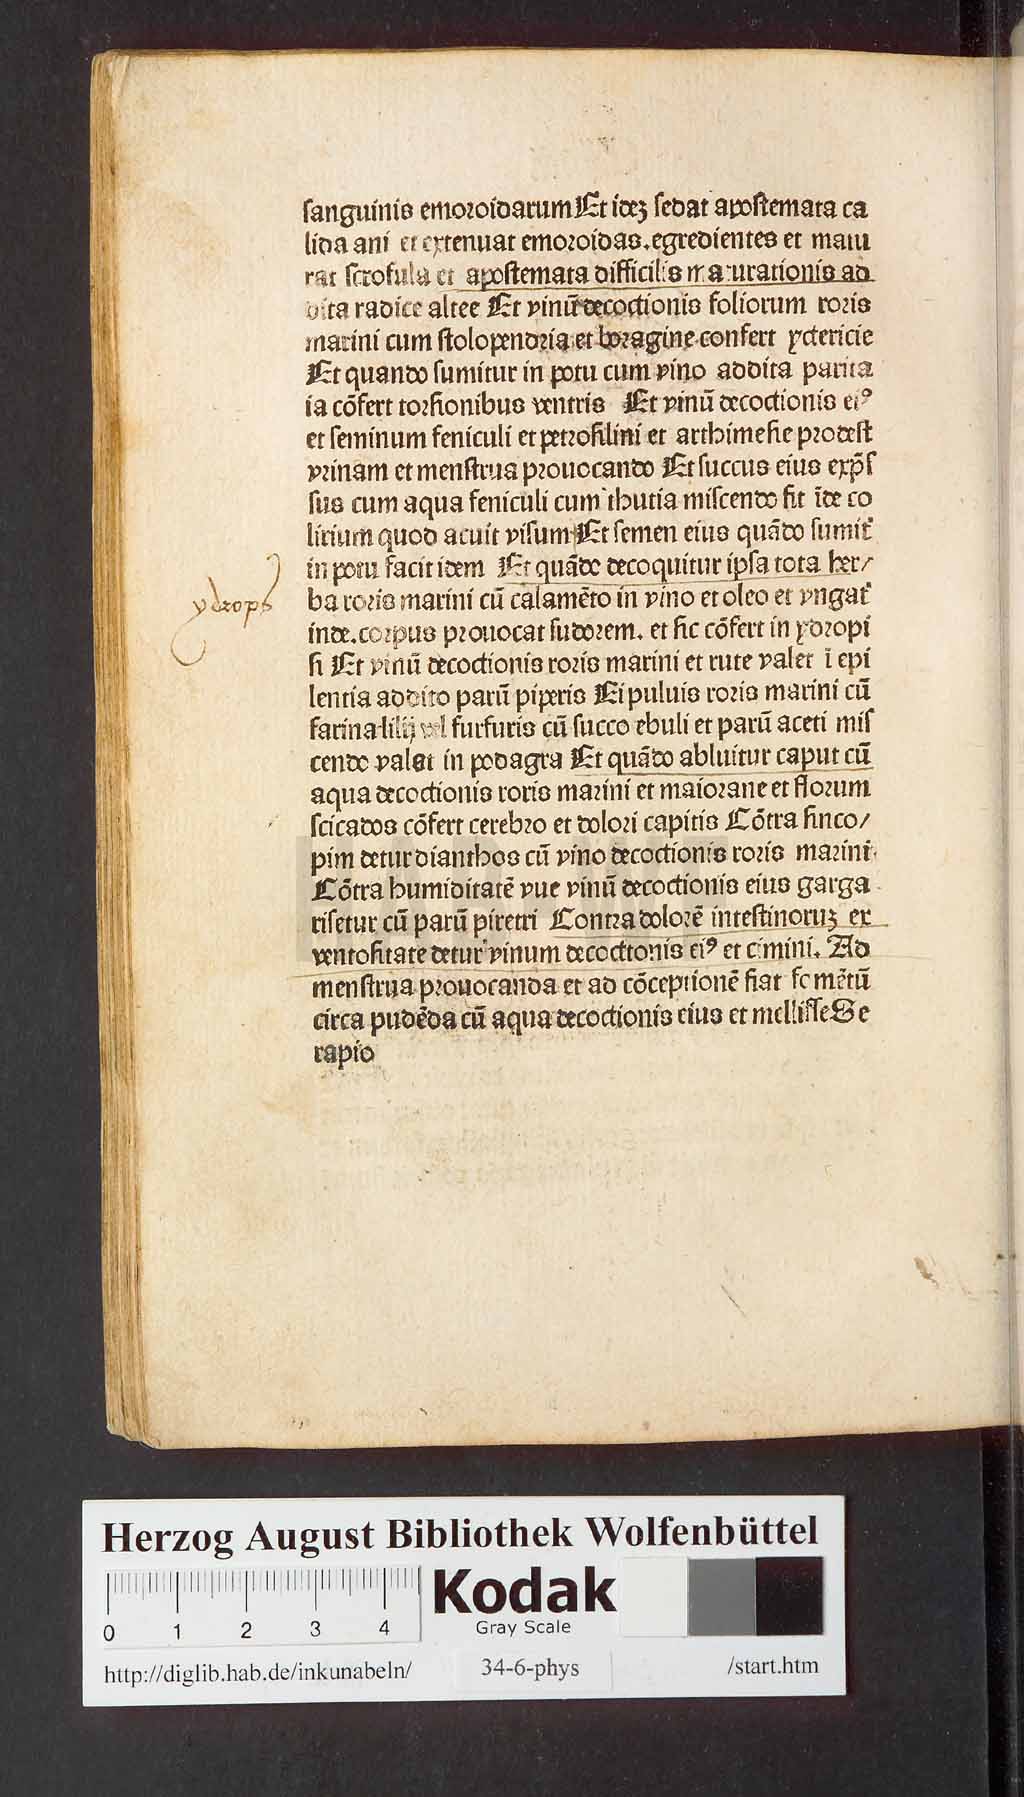 sanguinis emoroidarum Et ideꝫ sedat apostemata ca
lida ani et extenuat emoroidas.egredientes et matu
rat scrofula et apostemata difficilis maturationis ad
dita radice altee Et vinū decoctionis foliorum roris
marini cum stolopendria et boragine confert yctericie
Et quando sumitur in potu cum vino addita parita
ia cōfert torsionibus ventris Et vinū decoctionis eiꝰ
et seminum feniculi et petrosilini et arthimesie prodest
vrinam et menstrua prouocando Et succus eius exp̄s
sus cum aqua feniculi cum thutia miscendo fit īde co
lirium quod acuit visum Et semen eius quādo sumit᷑
in potu facit idem Et quādo decoquitur ipsa tota her/
ba roris marini cū calamēto in vino et oleo et vngat᷑
inde.corpus prouocat sudorem. et sic cōfert in ydropi
si Et vinū decoctionis roris marini et rute valet ī epi
lentia addito parū piperis Et puluis roris marini cū
farina lilij vel furfuris cū succo ebuli et parū aceti mis
cendo valet in podagra Et quādo abluitur caput cū
aqua decoctionis roris marini et maiorane et florum
scicados cōfert cerebro et dolori capitis Cōtra sinco/
pim detur dianthos cū vino decoctionis roris marini.
Cōtra humiditatē vue vinū decoctionis eius garga
risetur cū parū piretri Contra dolorē intestinoruꝫ ex
ventositate detur vinum decoctonis eiꝰ et cimini. Ad
menstrua prouocanda et ad cōceptionē fiat fomētū
circa pudēda cū aqua decoctionis eius et mellisse Se
rapio
ydrops
Herzog August Bibliothek Wolfenbüttel
0 1 2 3 4
Kodak
Gray Scale
http://diglib.hab.de/inkunabeln/ 34-6-phys /start.htm